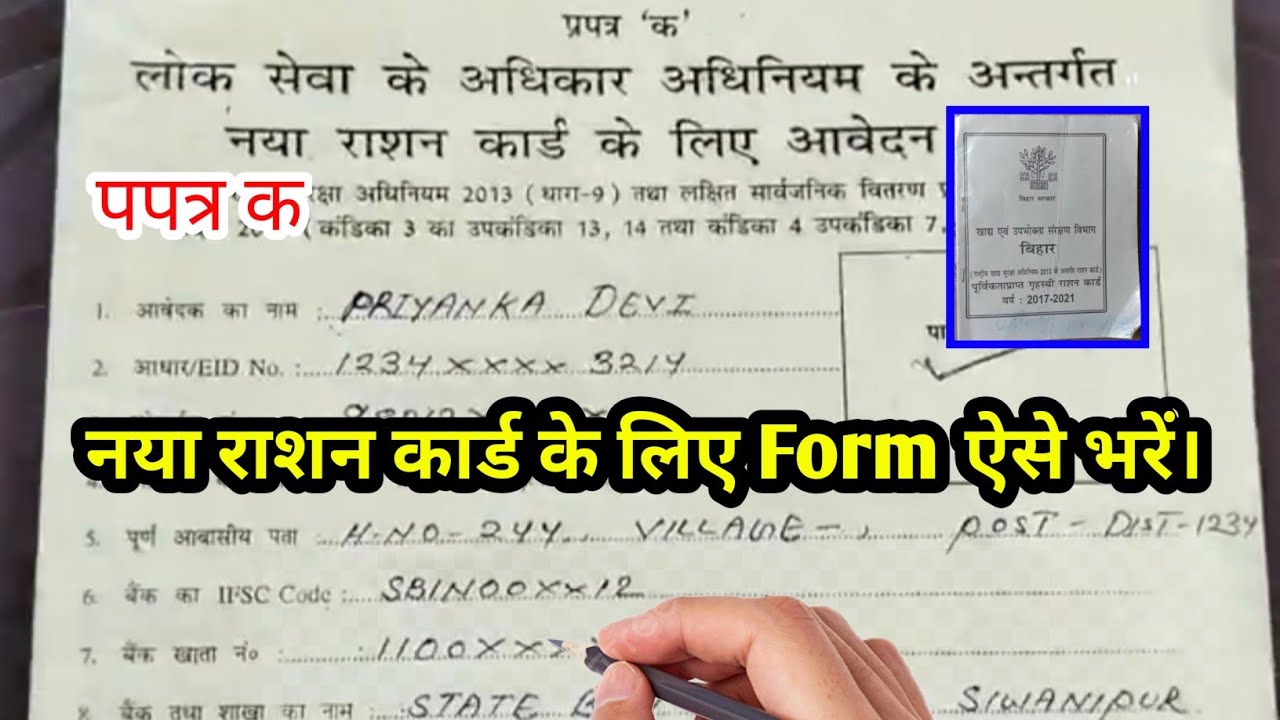 प्रपत्र 'क'
लोक सेवा के अधिकार अधिनियम के अन्तर्गत
नया राशन कार्ड के लिए आवेदन
पपत्र क
अधिनियम 2013 (धारा-9) तथा लक्षित सार्वजनिक वितरण
कंडिका 3 का उपकंडिका 13, 14 तथा कंडिका 4 उपकंडिका 7,
बिहार सरकार
खाद्य एवं उपभोक्ता संरक्षण विभाग
बिहार
(राष्ट्रीय खाद्य सुरक्षा अधिनियम-2013 के अन्तर्गत राशन कार्ड)
पूर्विकताप्राप्त गृहस्थी राशन कार्ड
वर्ष : 2017-2021
1. आवेदक का नाम : PRIYANKA DEVI
2. आधार/EID No. : 1234 XXXX 3214
नया राशन कार्ड के लिए Form ऐसे भरें।
5. पूर्ण आवासीय पता H.NO-244, VILLAGE - , POST - DIST-1234
6. बैंक का IFSC Code : SBIN00XX12
7. बैंक खाता नं० : 1100XXX
8. बैंक तथा शाखा का नाम : STATE SIWANIPUR